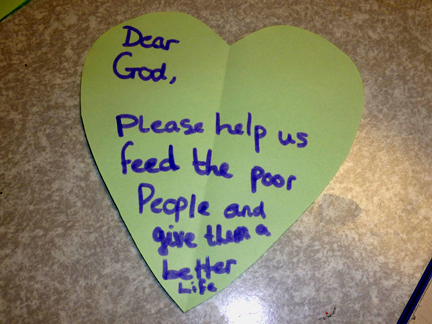 Dear
God,
Please help us
feed the poor
People and
give them a
better
Life